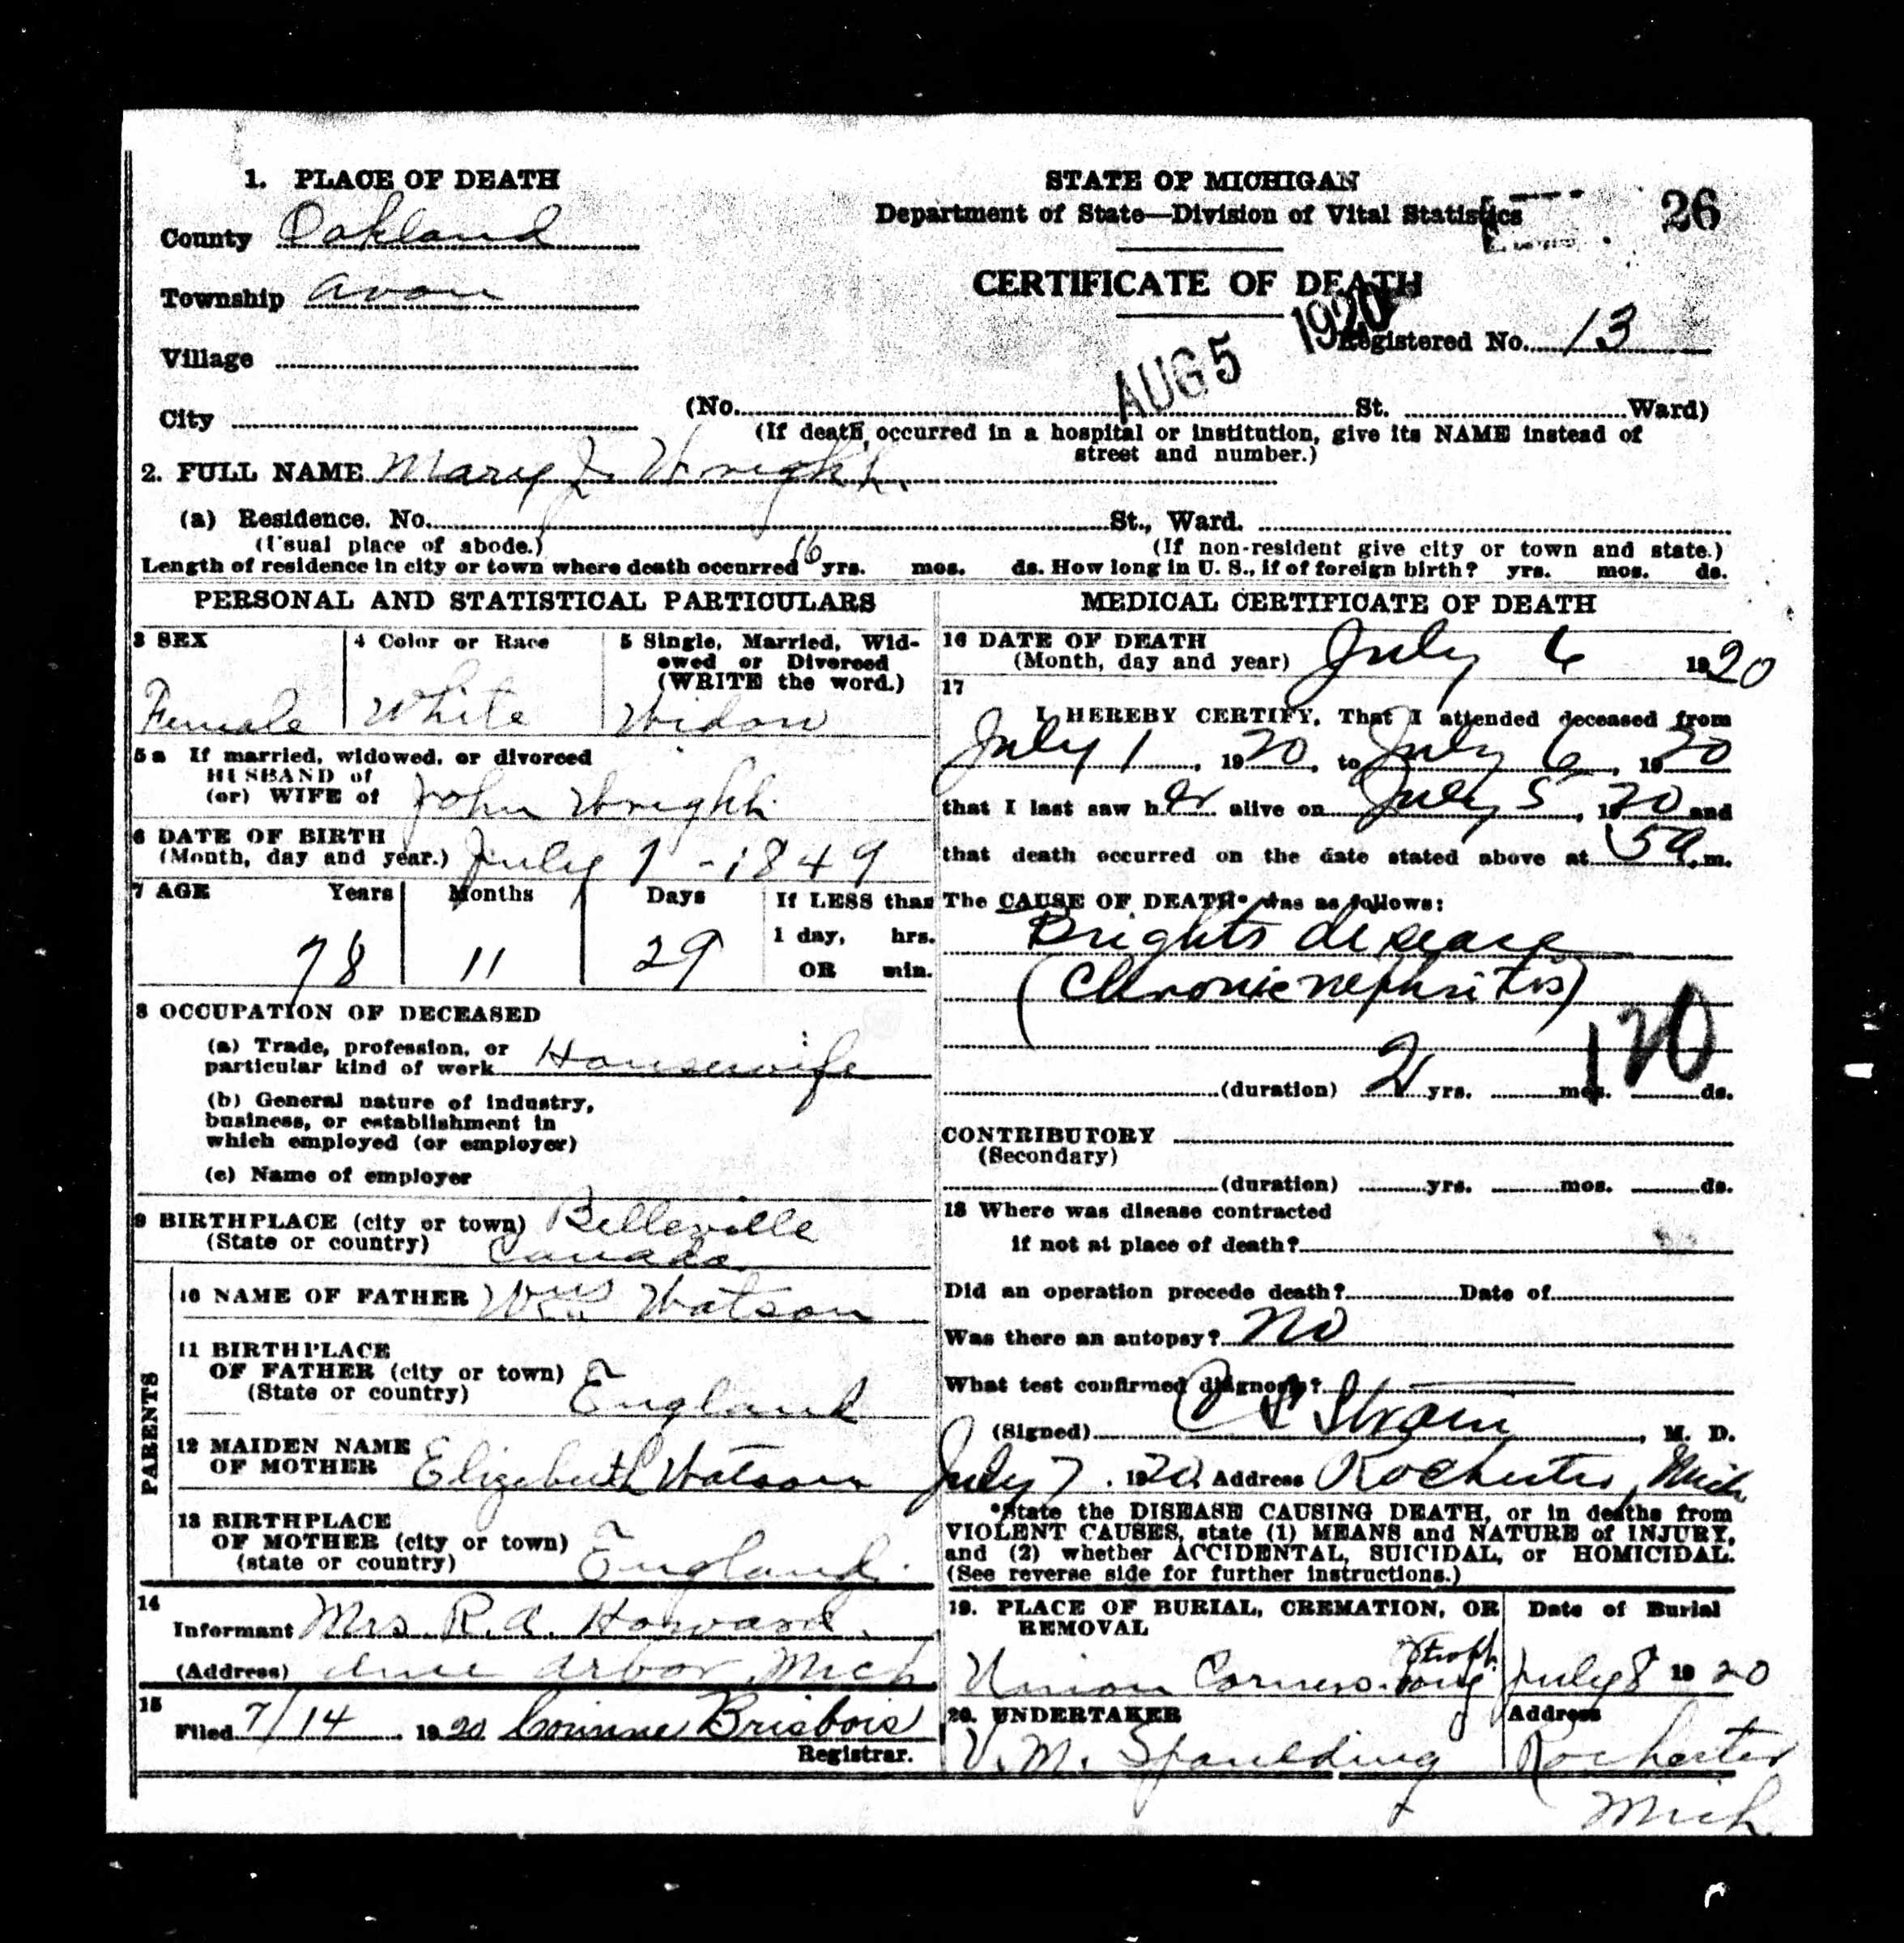 1. PLACE OF DEATH
County Oakland
Township Avon
Village
City
STATE OF MICHIGAN
Department of State—Division of Vital Statistics
26
CERTIFICATE OF DEATH
AUG 5 1920
Registered No. 13
(No. St. Ward)
(If death occurred in a hospital or institution, give its NAME instead of
street and number.)
2. FULL NAME Mary J. Wright.
(a) Residence. No. St., Ward.
(Usual place of abode.) (If non-resident give city or town and state.)
Length of residence in city or town where death occurred 16 yrs. mos. ds. How long in U. S., if of foreign birth? yrs. mos. ds.
PERSONAL AND STATISTICAL PARTICULARS
3 SEX
Female
4 Color or Race
White
5 Single, Married, Wid-
owed or Divorced
(WRITE the word.)
Widow
5a If married, widowed, or divorced
HUSBAND of
(or) WIFE of John Wright
6 DATE OF BIRTH
(Month, day and year.) July 7 - 1849
7 AGE Years Months Days If LESS than
1 day, hrs.
78 11 29
OR min.
8 OCCUPATION OF DECEASED
(a) Trade, profession, or
particular kind of work Housewife
(b) General nature of industry,
business, or establishment in
which employed (or employer)
(c) Name of employer
9 BIRTHPLACE (city or town) Belleville
(State or country) Canada
PARENTS
10 NAME OF FATHER Wm Watson
11 BIRTHPLACE
OF FATHER (city or town)
(State or country) England
12 MAIDEN NAME
OF MOTHER Elizabeth Watson
13 BIRTHPLACE
OF MOTHER (city or town)
(state or country) England.
14
Informant Mrs. R. A. Howard.
(Address) Ann Arbor, Mich.
15
Filed 7/14 1920 Corinne Brisbois
Registrar.
MEDICAL CERTIFICATE OF DEATH
16 DATE OF DEATH
(Month, day and year) July 6 1920
17
I HEREBY CERTIFY, That I attended deceased from
July 1, 1920, to July 6, 1920
that I last saw her alive on July 5, 1920 and
that death occurred on the date stated above at 5a.m.
The CAUSE OF DEATH* was as follows:
Brights disease
(Chronic nephritis)
120
(duration) 2 yrs. mos. ds.
CONTRIBUTORY
(Secondary)
(duration) yrs. mos. ds.
18 Where was disease contracted
if not at place of death?
Did an operation precede death? Date of
Was there an autopsy? No
What test confirmed diagnosis?
(Signed) C S Strain, M. D.
July 7, 1920 Address Rochester, Mich
*State the DISEASE CAUSING DEATH, or in deaths from
VIOLENT CAUSES, state (1) MEANS and NATURE of INJURY,
and (2) whether ACCIDENTAL, SUICIDAL, or HOMICIDAL.
(See reverse side for further instructions.)
19. PLACE OF BURIAL, CREMATION, OR
REMOVAL
Union Corners
Date of Burial
July 8 1920
20. UNDERTAKER
V. M. Spaulding
Address
Rochester
Mich.